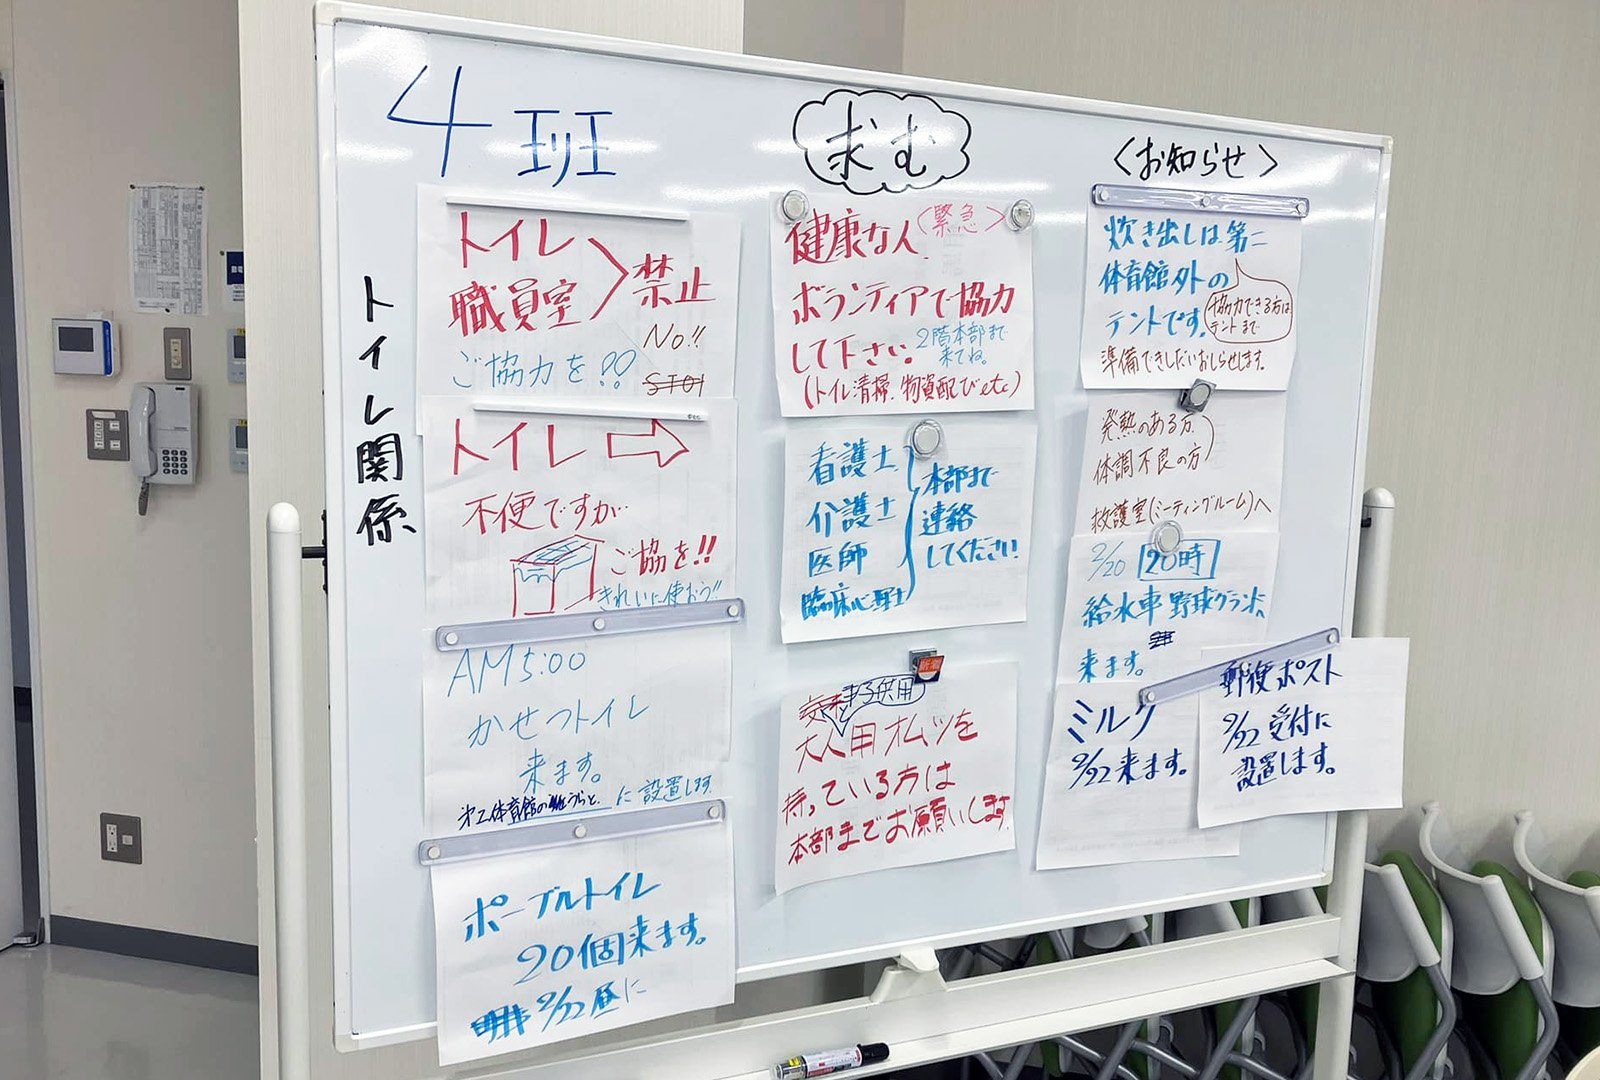 4班
トイレ関係
トイレ
職員室
禁止
No!!
ご協力を!!
トイレ
不便ですが
ご協を!!
きれいに使おう!!
AM5:00
かせつトイレ
来ます。
に設置します
ポーブルトイレ
20個来ます。
2/22昼に
求む
健康な人
〈緊急〉
ボランティアで協力
して下さい。
2階本部まで
来てね。
(トイレ清掃、物資配びetc)
看護士
介護士
医師
臨床心理士
本部まで
連絡
してください
大人用オムツを
持っている方は
本部までお願いします
〈お知らせ〉
炊き出しは第二
体育館外の
テントです。
協力できる方は
テントまで
準備できしだいおしらせします。
発熱のある方
体調不良の方
救護室(ミーティングルーム)へ
2/20 20時
給水車野球グランドへ
来ます。
ミルク
2/22来ます。
郵便ポスト
2/22受付に
設置します。